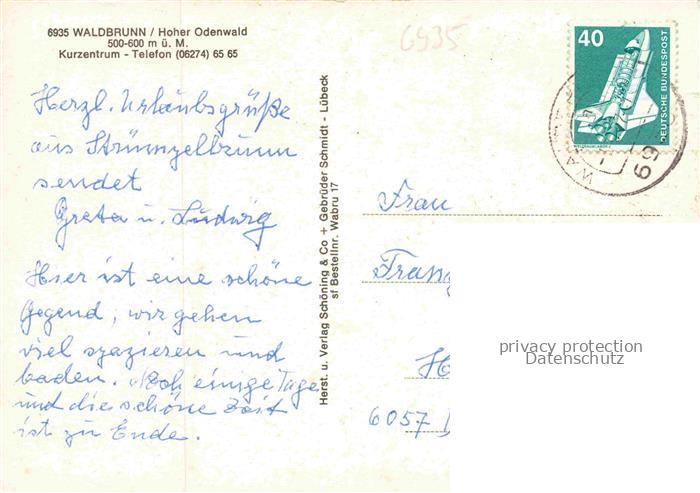 6935 WALDBRUNN / Hoher Odenwald
500-600 m ü. M.
Kurzentrum - Telefon (06274) 65 65
Herzl. Urlaubsgrüße
aus Strümpelbrunn
sendet
Greta u. Ludwig
Hier ist eine schöne
Gegend, wir gehen
viel spazieren und
baden. Noch einige Tage
und die schöne Zeit
ist zu Ende.
Herst. u. Verlag Schöning & Co + Gebrüder Schmidt - Lübeck
sf Bestellnr. Wabru 17
6935
40
DEUTSCHE BUNDESPOST
Frau
Franz
H
6057 D
privacy protection
Datenschutz